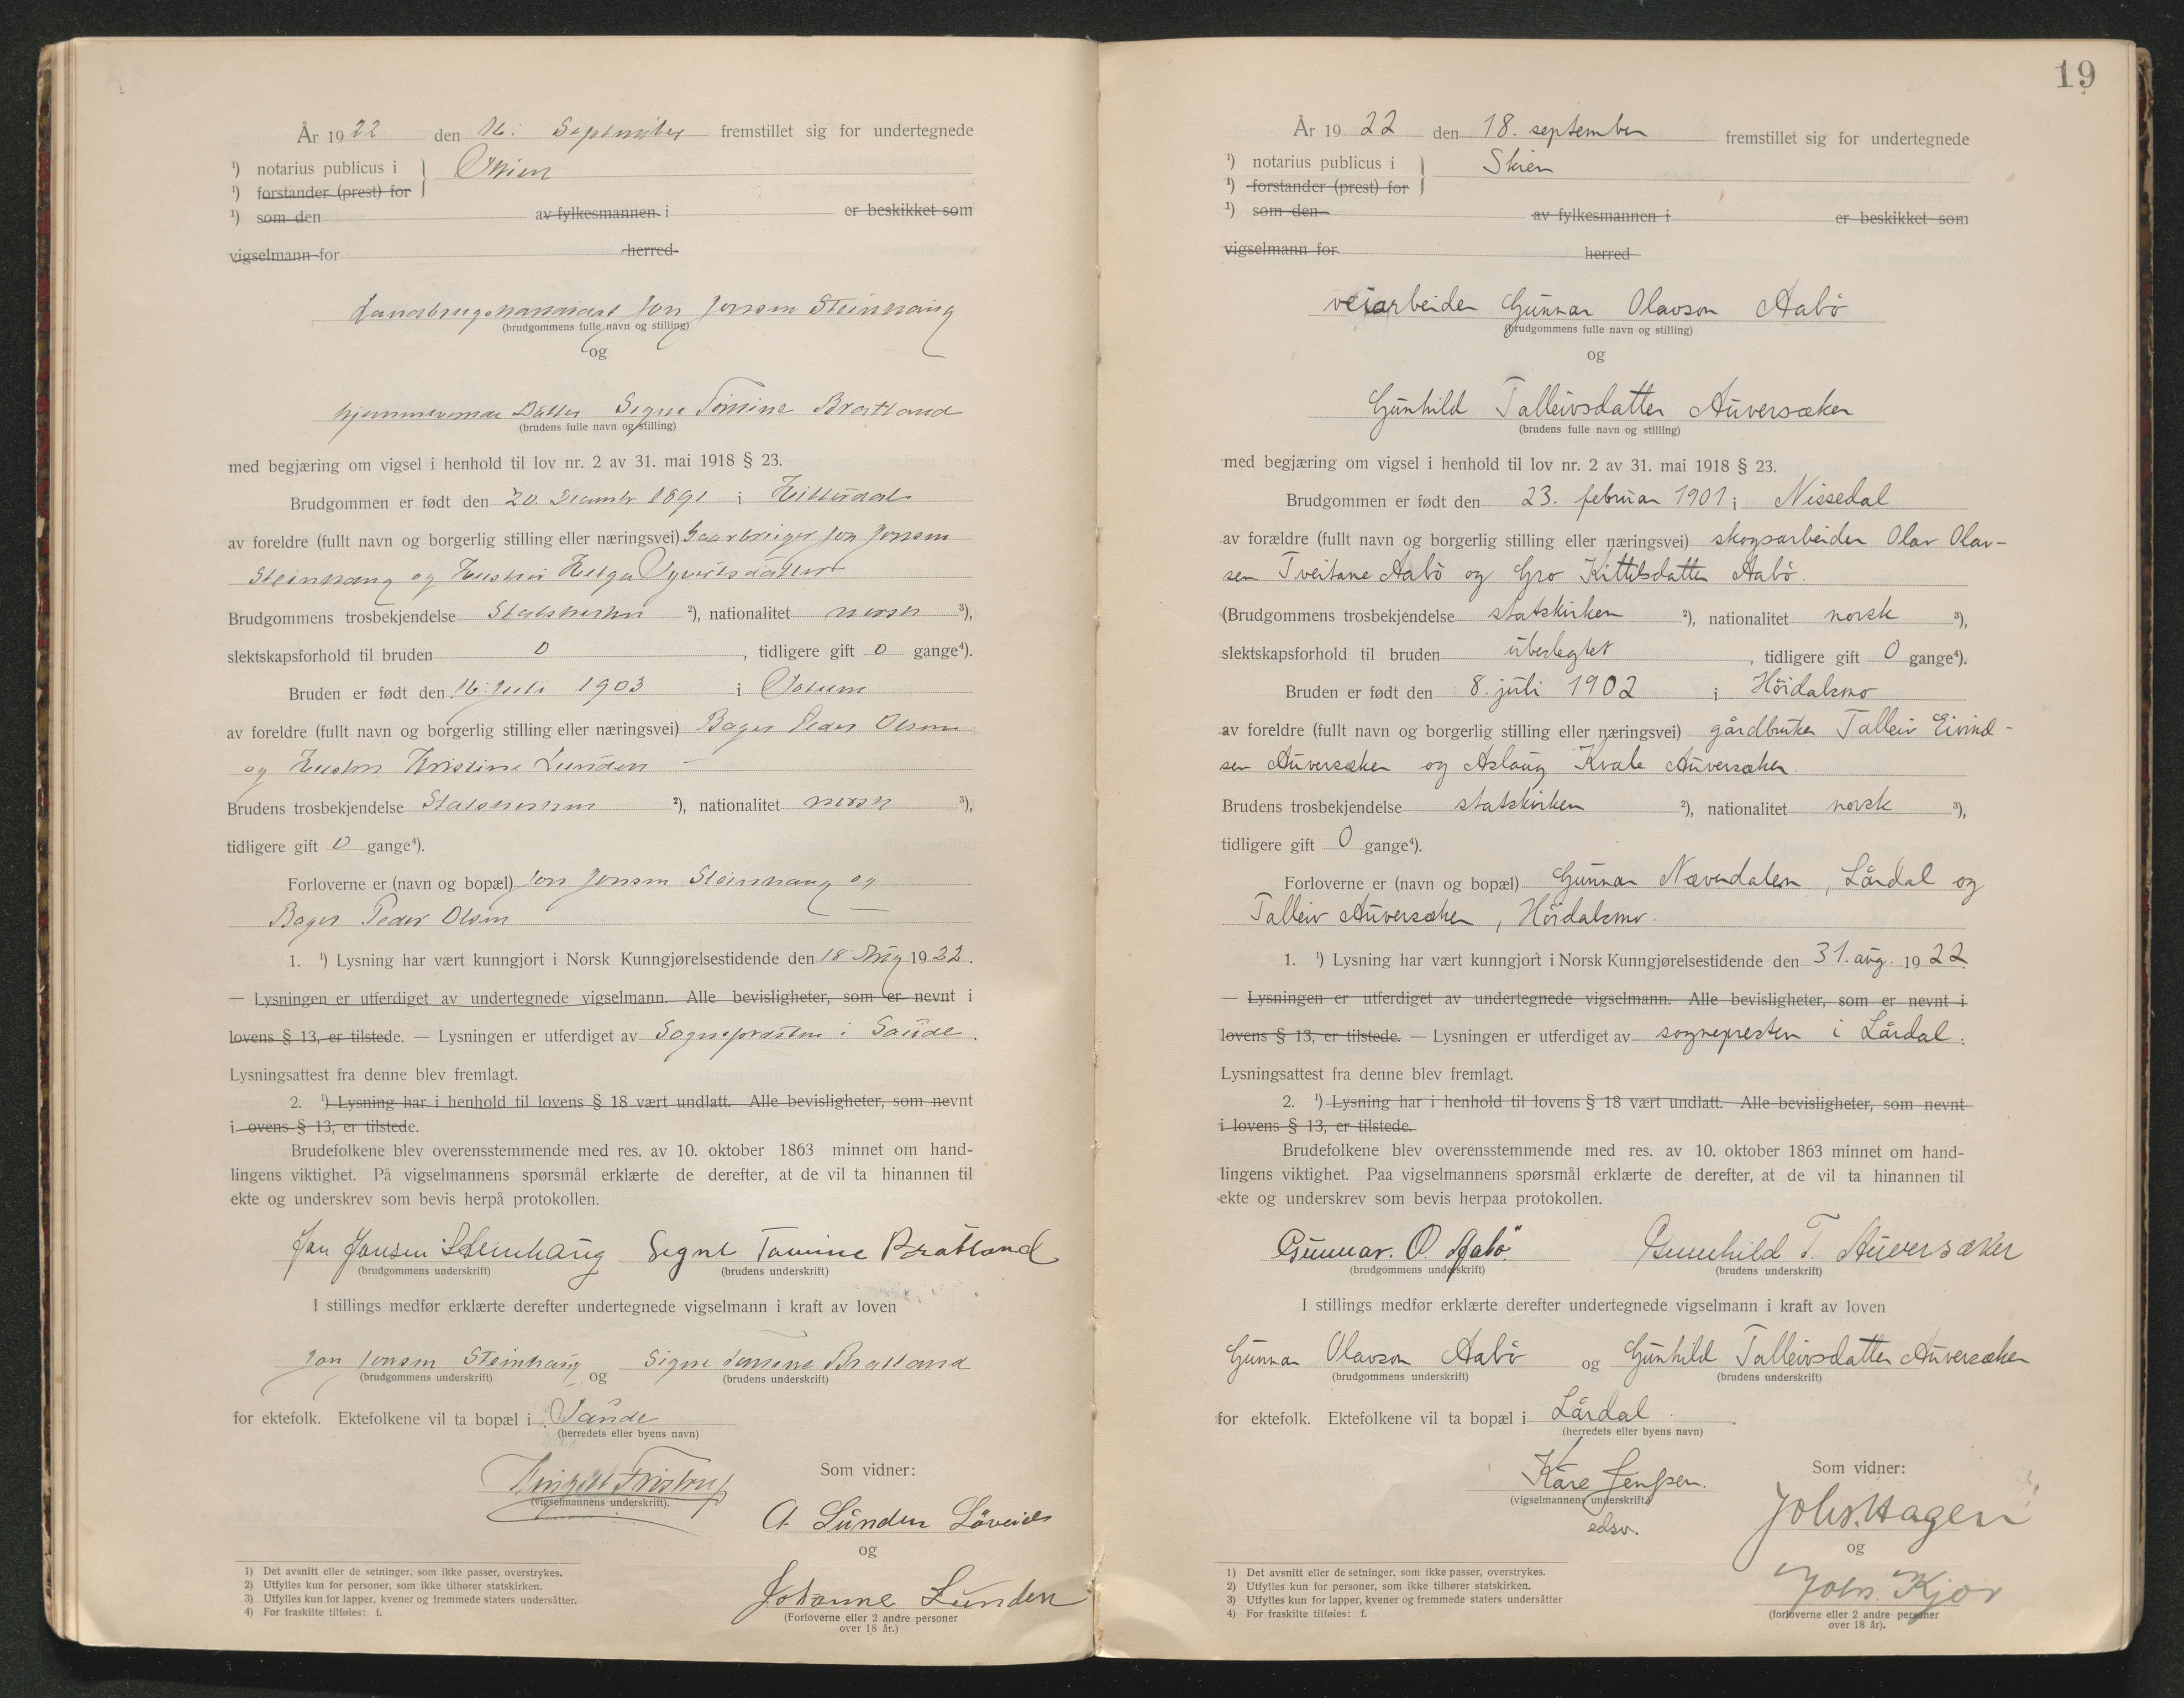 År 1922 den 16. September fremstillet sig for undertegnede
¹) notarius publicus i } Skien
¹) forstander (prest) for
¹) som den av fylkesmannen i er beskikket som
vigselmann for herred
Landbrugskandidat Jon Jonsen Steinhaug
(brudgommens fulle navn og stilling)
og
hjemmeværende Datter Signe Tomine Bratland
(brudens fulle navn og stilling)
med begjæring om vigsel i henhold til lov nr. 2 av 31. mai 1918 § 23.
Brudgommen er født den 20. December 1891 i Hitterdal
av foreldre (fullt navn og borgerlig stilling eller næringsvei) Gaardbruger Jon Jonsen
Steinhaug og Hustru Helga
Brudgommens trosbekjendelse Statskirken ²), nationalitet norsk ³),
slektskapsforhold til bruden 0, tidligere gift 0 gange⁴).
Bruden er født den 16. Juli 1903 i
av foreldre (fullt navn og borgerlig stilling eller næringsvei) Bager Peder Olsen
og Hustru Kristine Lunden
Brudens trosbekjendelse Statskirken ²), nationalitet norsk ³),
tidligere gift 0 gange⁴).
Forloverne er (navn og bopæl) Jon Jonsen Steinhaug og
Bager Peder Olsen
1. ¹) Lysning har vært kunngjort i Norsk Kunngjørelsestidende den 18 Aug 1922.
— Lysningen er utferdiget av undertegnede vigselmann. Alle bevisligheter, som er nevnt i
lovens § 13, er tilstede. — Lysningen er utferdiget av Sognepræsten i Saude.
Lysningsattest fra denne blev fremlagt.
2. ¹) Lysning har i henhold til lovens § 18 vært undlatt. Alle bevisligheter, som nevnt
i ovens § 13, er tilstede.
Brudefolkene blev overensstemmende med res. av 10. oktober 1863 minnet om hand-
lingens viktighet. På vigselmannens spørsmål erklærte de derefter, at de vil ta hinannen til
ekte og underskrev som bevis herpå protokollen.
Jon Jonsen Steinhaug Signe Tomine Bratland
(brudgommens underskrift) (brudens underskrift)
I stillings medfør erklærte derefter undertegnede vigselmann i kraft av loven
Jon Jonsen Steinhaug og Signe Tomine Bratland
(brudgommens underskrift) (brudens underskrift)
for ektefolk. Ektefolkene vil ta bopæl i Saude
(herredets eller byens navn)
Fristrup
(vigselmannens underskrift).
Som vidner:
A. Lunden Løveid
og
Johanne Lunden
(Forloverne eller 2 andre personer
over 18 år.)
1) Det avsnitt eller de setninger, som ikke passer, overstrykes.
2) Utfylles kun for personer, som ikke tilhører statskirken.
3) Utfylles kun for lapper, kvener og fremmede staters undersåtter.
4) For fraskilte tilføies: f.
19
År 1922 den 18. september fremstillet sig for undertegnede
¹) notarius publicus i } Skien
¹) forstander (prest) for
¹) som den av fylkesmannen i er beskikket som
vigselmann for herred
veiarbeider Gunnar Olavson Aabö
(brudgommens fulle navn og stilling)
og
Gunhild Talleivsdatter Auversæker
(brudens fulle navn og stilling)
med begjæring om vigsel i henhold til lov nr. 2 av 31. mai 1918 § 23.
Brudgommen er født den 23. februar 1901 i Nissedal
av forældre (fullt navn og borgerlig stilling eller næringsvei) skogsarbeider Olav Olav-
sen Tveitane Aabö og Gro Kittilsdatter Aabö.
(Brudgommens trosbekjendelse statskirken ²), nationalitet norsk ³),
slektskapsforhold til bruden ubeslegtet, tidligere gift 0 gange⁴).
Bruden er født den 8. juli 1902 i Höidalsmo
av foreldre (fullt navn og borgerlig stilling eller næringsvei) gårdbruker Talleiv Eivind-
sen Auversæker og Aslaug Kvale Auversæker.
Brudens trosbekjendelse statskirken ²), nationalitet norsk ³),
tidligere gift 0 gange⁴).
Forloverne er (navn og bopæl) Gunnar Nævendalen, Lårdal og
Talleiv Auversæker, Höidalsmo.
1. ¹) Lysning har vært kunngjort i Norsk Kunngjørelsestidende den 31. aug. 1922.
— Lysningen er utferdiget av undertegnede vigselmann. Alle bevisligheter, som er nevnt i
lovens § 13, er tilstede. — Lysningen er utferdiget av sognepresten i Lårdal.
Lysningsattest fra denne blev fremlagt.
2. ¹) Lysning har i henhold til lovens § 18 vært undlatt. Alle bevisligheter, som nevnt
i lovens § 13, er tilstede.
Brudefolkene blev overensstemmende med res. av 10. oktober 1863 minnet om hand-
lingens viktighet. Paa vigselmannens spørsmål erklærte de derefter, at de vil ta hinannen til
ekte og underskrev som bevis herpaa protokollen.
Gunnar. O. Aabö. Gunhild T. Auversæker
(brudgommens underskrift) (brudens underskrift)
I stillings medfør erklærte derefter undertegnede vigselmann i kraft av loven
Gunnar Olavson Aabö og Gunhild Talleivsdatter Auversæker
(brudgommens underskrift) (brudens underskrift)
for ektefolk. Ektefolkene vil ta bopæl i Lårdal.
(herredets eller byens navn)
Kåre Jenssen.
(vigselmannens underskrift).
edsv.
Som vidner:
Johs. Hagen
og
Johs. Kjær
(forloverne eller 2 andre personer
over 18 år).
1) Det avsnitt eller de setninger, som ikke passer, overstrykes.
2) Utfylles kun for personer, som ikke tilhører statskirken.
3) Utfylles kun for lapper, kvener og fremmede staters undersåtter
4) For fraskilte tilføies: f.